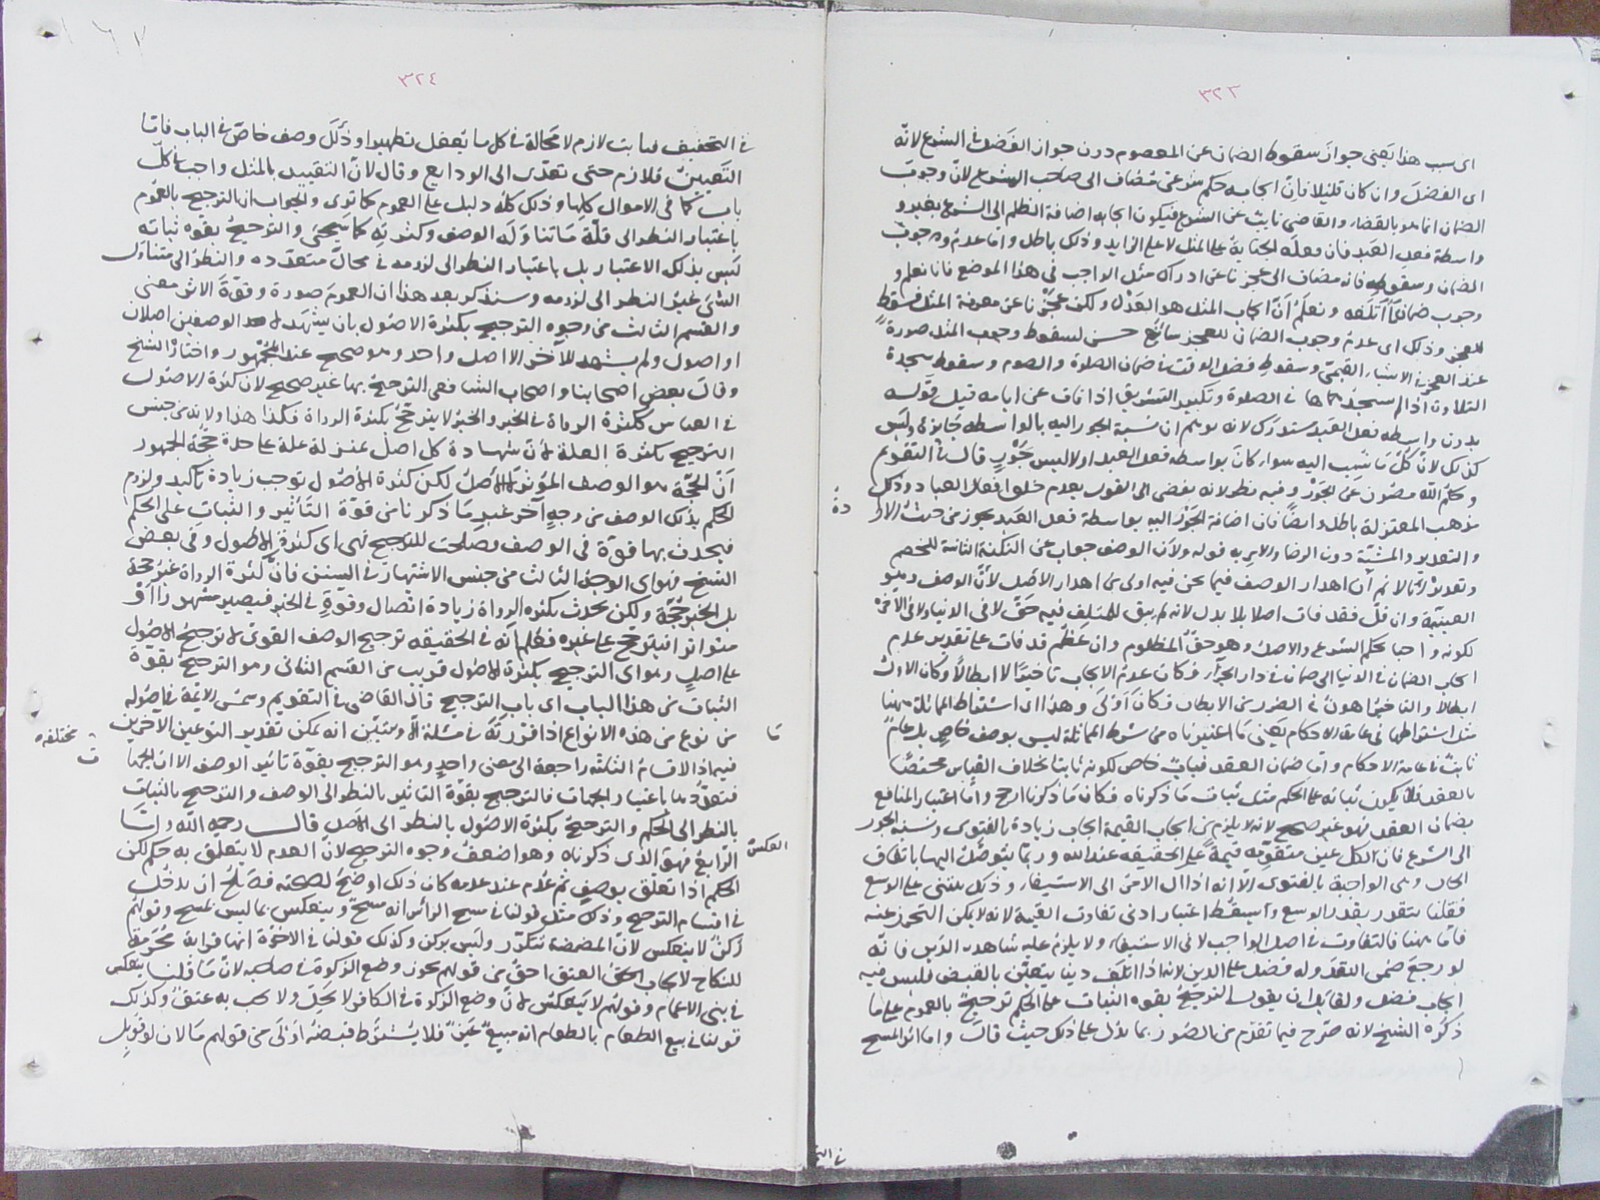 ٣٢٣
اى بسبب هذا يعنى جواز سقوط الضمان عن المعصوم دون جواز الفضل فى الشرع لانه
اى الفضل وان كان قليلا فان ايجابه حكم شرعى مضاف الى صاحب الشرع لان وجوب
الضمان انما هو بالقضاء والقاضى نايب عن الشرع فيكون ايجابه اضافة الظلم الى الشرع بغير
واسطة فعل العبد فان فعله الجناية على المثل لا على الزايد وذلك باطل واما عدم وجوب
الضمان وسقوطه فانه مضاف الى عجزنا عن ادراك مثل الواجب فى هذا الموضع فانا نعلم
وجوب ضمان ما اتلفه ونعلم ان ايجاب المثل هو العدل ولكن عجزنا عن معرفة المثل فسقط
للعجز وذلك اى عدم وجوب الضمان للعجز سائغ حسن لسقوط وجوب المثل صورة
عند العجز فى الاشياء القيمى وسقوط فضل الوقت فى ضمان الصلوة والصوم وسقوط سجدة
التلاوة اذا لم يسجدها فى الصلوة وتكبير التشريق اذا فات عن ايامه قيل قوله
بدون واسطه فعل العبد مستدرك لانه يوهم ان نسبة الجور اليه بالواسطه جايز وليس
كذلك لان كل ما نسب اليه سواء كان بواسطه فعل العبد اولا ليس بجور قال فى التقويم
وحكم الله مصون عن الجور وفيه نظر لانه يفضى الى القول بعدم خلق افعال العباد وذلك
مذهب المعتزلة باطل وايضا فان اضافة الجور اليه بواسطة فعل العبد يجوز من حيث الارا
دة
والتقدير والمشية دون الرضا والامر به قوله ولان الوصف جواب عن النكتة الثانية للخصم
وتقديره انا لا نم ان اهدار الوصف فيما نحن فيه اولى من اهدار الاصل لان الوصف وهو
العينية وان قل فقد فات اصلا بلا بدل لانه لم يبق للمتلف فيه حق لا فى الدنيا ولا فى الاخرة
لكونه واجبا بحكم الشرع والاصل وهو حق المظلوم وان عظم قد فات على تقدير عدم
ايجاب الضمان فى الدنيا الى ضمان فى دار الجزاء فكان عدم الايجاب تاخيرا لا ابطالا وكان الاول
ابطالا والتاخير اهون فى الضرر من الابطال فكان اولى وهذا اى اشتراط المماثلة ههنا
مثل اشتراطها فى عامة الاحكام يعنى ما اعتبرناه من شرط المماثلة ليس بوصف خاص بل عام
ثابت فى عامة الاحكام واما ضمان العقد فباب خاص لكونه ثابتا بخلاف القياس مختصا
بالعقد فلا يكون ثباته على الحكم مثل ثبات ما ذكرناه فكان ما ذكرنا ارجح واما اعتبار المنافع
بضمان العقد فهو غير صحيح لانه لا يلزم من ايجاب القيمة ايجاب زيادة بالفتوى ونسبة الجور
الى الشرع فان الكل عين متقومة قيمة على الحقيقه عند الله وربما يتوصل اليها باتفاق
الحال وهى الواجبة بالفتوى الا انه اذا ال الامر الى الاستيفاء وذلك يبتنى على الوسع
فقلنا يتقدر بقدر الوسع وسقط اعتبار ادنى تفاوت القيمة لانه لا يمكن التحرز عنه
فاما ههنا فالتفاوت فى اصل الواجب لا فى الاستيفاء ولا يلزم عليه شاهد الدين فانه
لو رجع ضمن النقد وله فضل على الدين لانه اذا اتلف دينا يتعين بالقبض فليس فيه
ايجاب فضل ولقايل ان يقول الترجيح بقوه الثبات على الحكم ترجيح بالعموم على ما
ذكره الشيخ لانه صرح فيما تقدم من الصور بما يدل على ذلك حيث قال واما اثر المسح
فى التخ
٣٢٤
فى التخفيف فثابت لازم لا محالة فى كل ما يعقل تطهيرا وذلك وصف خاص فى الباب فاما
التعيين فلازم حتى تعدى الى الودايع وقال لان التقييد بالمثل واجب فى كل
باب كما فى الاموال كلها وذلك كله دليل على العموم كما ترى والجواب ان الترجيح بالعموم
باعتبار النظر الى قلة ما تناوله الوصف وكثرته كما سيجئ والترجيح بقوه ثباته
ليس بذلك الاعتبار بل باعتبار النظر الى لزومه فى محال متعدده والنظر الى متناول
الشئ غير النظر الى لزومه وسنذكر بعد هذا ان العموم صورة وقوة الاثر معنى
والقسم الثالث من وجوه الترجيح بكثرة الاصول بان يشهد لاحد الوصفين اصلان
او اصول ولم يشهد للآخر الا اصل واحد وهو صحيح عند الجمهور واختاره الشيخ
وقال بعض اصحابنا واصحاب الشافعى الترجيح بها غير صحيح لان كثرة الاصول
فى القياس ككثرة الرواة فى الخبر والخبر لا يترجح بكثرة الرواة فكذا هذا ولانه من جنس
الترجيح بكثرة العلة لان شهادة كل اصل بمنزلة علة على حدة حجة الجمهور
ان الحجة هو الوصف المؤثر لا الاصل لكن كثرة الاصول توجب زيادة تاكيد ولزوم
الحكم بذلك الوصف من وجه آخر غير ما ذكرنا من قوة التأثير والثبات على الحكم
فيحدث بها قوة فى الوصف فصلحت للترجيح فهى اى كثرة الاصول وفى بعض
الشيخ فهو اى الوجه الثالث من جنس الاشتهار فى السنن فان كثرة الرواة غير حجة
بل الخبر حجة ولكن يحدث بكثره الرواة زيادة اتصال وقوة فى الخبر فيصير مشهورا او
متواترا فيترجح على غيره فعلم انه فى الحقيقه ترجيح الوصف القوى لا ترجيح الاصول
على اصل وهو اى الترجيح بكثرة الاصول قريب من القسم الثانى وهو الترجيح بقوة
الثبات من هذا الباب اى باب الترجيح قال القاضى فى التقويم وشمس الائمة فى اصوله
ما
من نوع من هذه الانواع اذا قررته فى مسئلة الا وتبين انه يمكن تقدير النوعين الآخرين
مختلفه
فيه اذ الاقسام الثلثه راجعة الى معنى واحد وهو الترجيح بقوة تاثير الوصف الا ان الجها
ت
فتعددها باعتبار الجهات فالترجيح بقوة التاثير بالنظر الى الوصف والترجيح بالثبات
بالنظر الى الحكم والترجيح بكثرة الاصول بالنظر الى الاصل قال رحمه الله واما
العكس
الرابع فهو الذى ذكرناه وهو اضعف وجوه الترجيح لان العدم لا يتعلق به حكم لكن
الحكم اذا تعلق بوصف ثم عدم عند عدمه كان ذلك اوضح لصحته فصلح ان يدخل
فى اقسام الترجيح وذلك مثل قولنا فى مسح الرأس انه مسح وينعكس بما ليس بمسح وقولهم
ركن لا ينعكس لان المضمضة تتكرر وليس بركن وكذلك قولنا فى الاخوة انها قرابة محرمة
للنكاح لايجاب العتق احق من قولهم يجوز وضع الزكوة فى صاحبه لان ما قلنا ينعكس
فى بنى الاعمام وقولهم لا ينعكس لان وضع الزكوة فى الكافر لا يحل ولا يجب به عتق وكذلك
قولنا فى بيع الطعام بالطعام انه مبيع عين فلا يشترط قبضه اولى من قولهم مالان لو قوبل